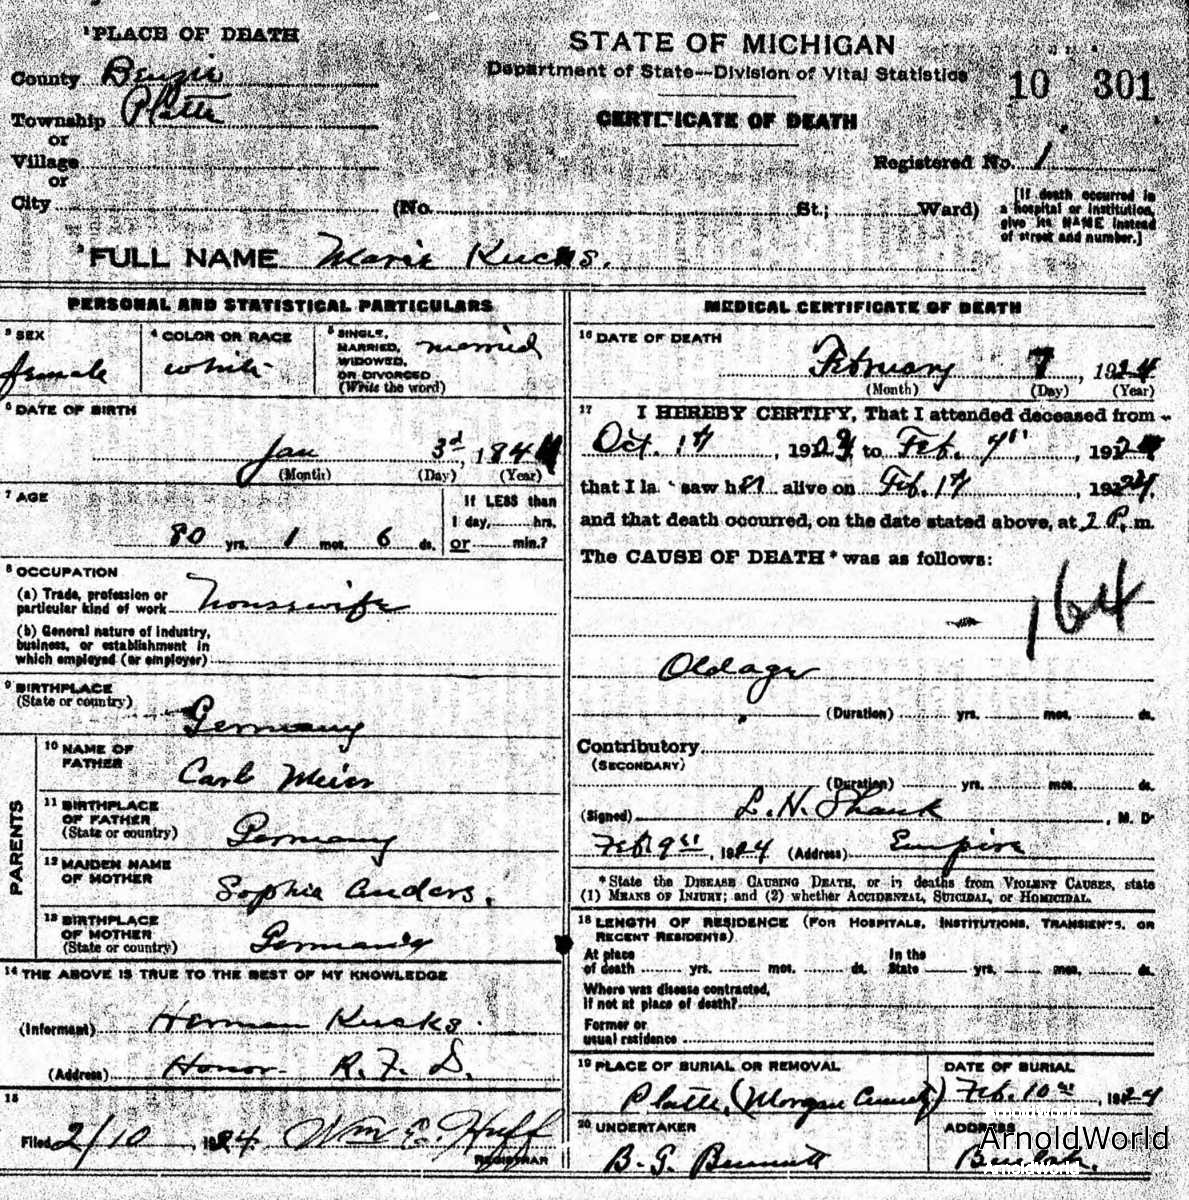 ¹PLACE OF DEATH
County Benzie
Township Platte
or
Village
or
City (No. St.; Ward)
STATE OF MICHIGAN
Department of State—Division of Vital Statistics
CERTIFICATE OF DEATH
10 301
Registered No. 1
[If death occurred in
a hospital or institution,
give its NAME instead
of street and number.]
²FULL NAME Marie Kucks.
PERSONAL AND STATISTICAL PARTICULARS
³ SEX
female
⁴ COLOR OR RACE
white
⁵ SINGLE,
MARRIED,
WIDOWED,
OR DIVORCED
(Write the word)
married
⁶ DATE OF BIRTH
Jan 3d, 1844
(Month) (Day) (Year)
⁷ AGE
80 yrs. 1 mos. 6 ds.
If LESS than
1 day, hrs.
or min.?
⁸ OCCUPATION
(a) Trade, profession or
particular kind of work housewife
(b) General nature of industry,
business, or establishment in
which employed (or employer)
⁹ BIRTHPLACE
(State or country)
Germany
PARENTS
¹⁰ NAME OF
FATHER
Carl
¹¹ BIRTHPLACE
OF FATHER
(State or country)
Germany
¹² MAIDEN NAME
OF MOTHER
Sophia Anders.
¹³ BIRTHPLACE
OF MOTHER
(State or country)
Germany
¹⁴ THE ABOVE IS TRUE TO THE BEST OF MY KNOWLEDGE
(Informant) Herman Kucks.
(Address) Honor R. F. D.
¹⁵
Filed 2/10, 1924 Wm E. Huff
REGISTRAR
MEDICAL CERTIFICATE OF DEATH
¹⁶ DATE OF DEATH
February 7, 1924
(Month) (Day) (Year)
¹⁷ I HEREBY CERTIFY, That I attended deceased from
Oct. 1st, 192 to Feb. 7", 192
that I last saw her alive on Feb. 1st, 1924.
and that death occurred, on the date stated above, at 2 P. m.
The CAUSE OF DEATH* was as follows:
164
Old age
(Duration) yrs. mos. ds.
Contributory
(SECONDARY)
(Duration) yrs. mos. ds.
(Signed) L. N. Shank, M. D
Feb 9th, 1924 (Address) Empire
*State the DISEASE CAUSING DEATH, or in deaths from VIOLENT CAUSES, state
(1) MEANS OF INJURY; and (2) whether ACCIDENTAL, SUICIDAL, or HOMICIDAL.
¹⁸ LENGTH OF RESIDENCE (FOR HOSPITALS, INSTITUTIONS, TRANSIENTS, OR
RECENT RESIDENTS)
At place
of death yrs. mos. ds.
In the
State yrs. mos. ds.
Where was disease contracted,
if not at place of death?
Former or
usual residence
¹⁹ PLACE OF BURIAL OR REMOVAL
Platte,
DATE OF BURIAL
Feb. 10th, 1924
²⁰ UNDERTAKER
B. G. Bennett
ADDRESS
ArnoldWorld
ArnoldWorld
ArnoldWorld